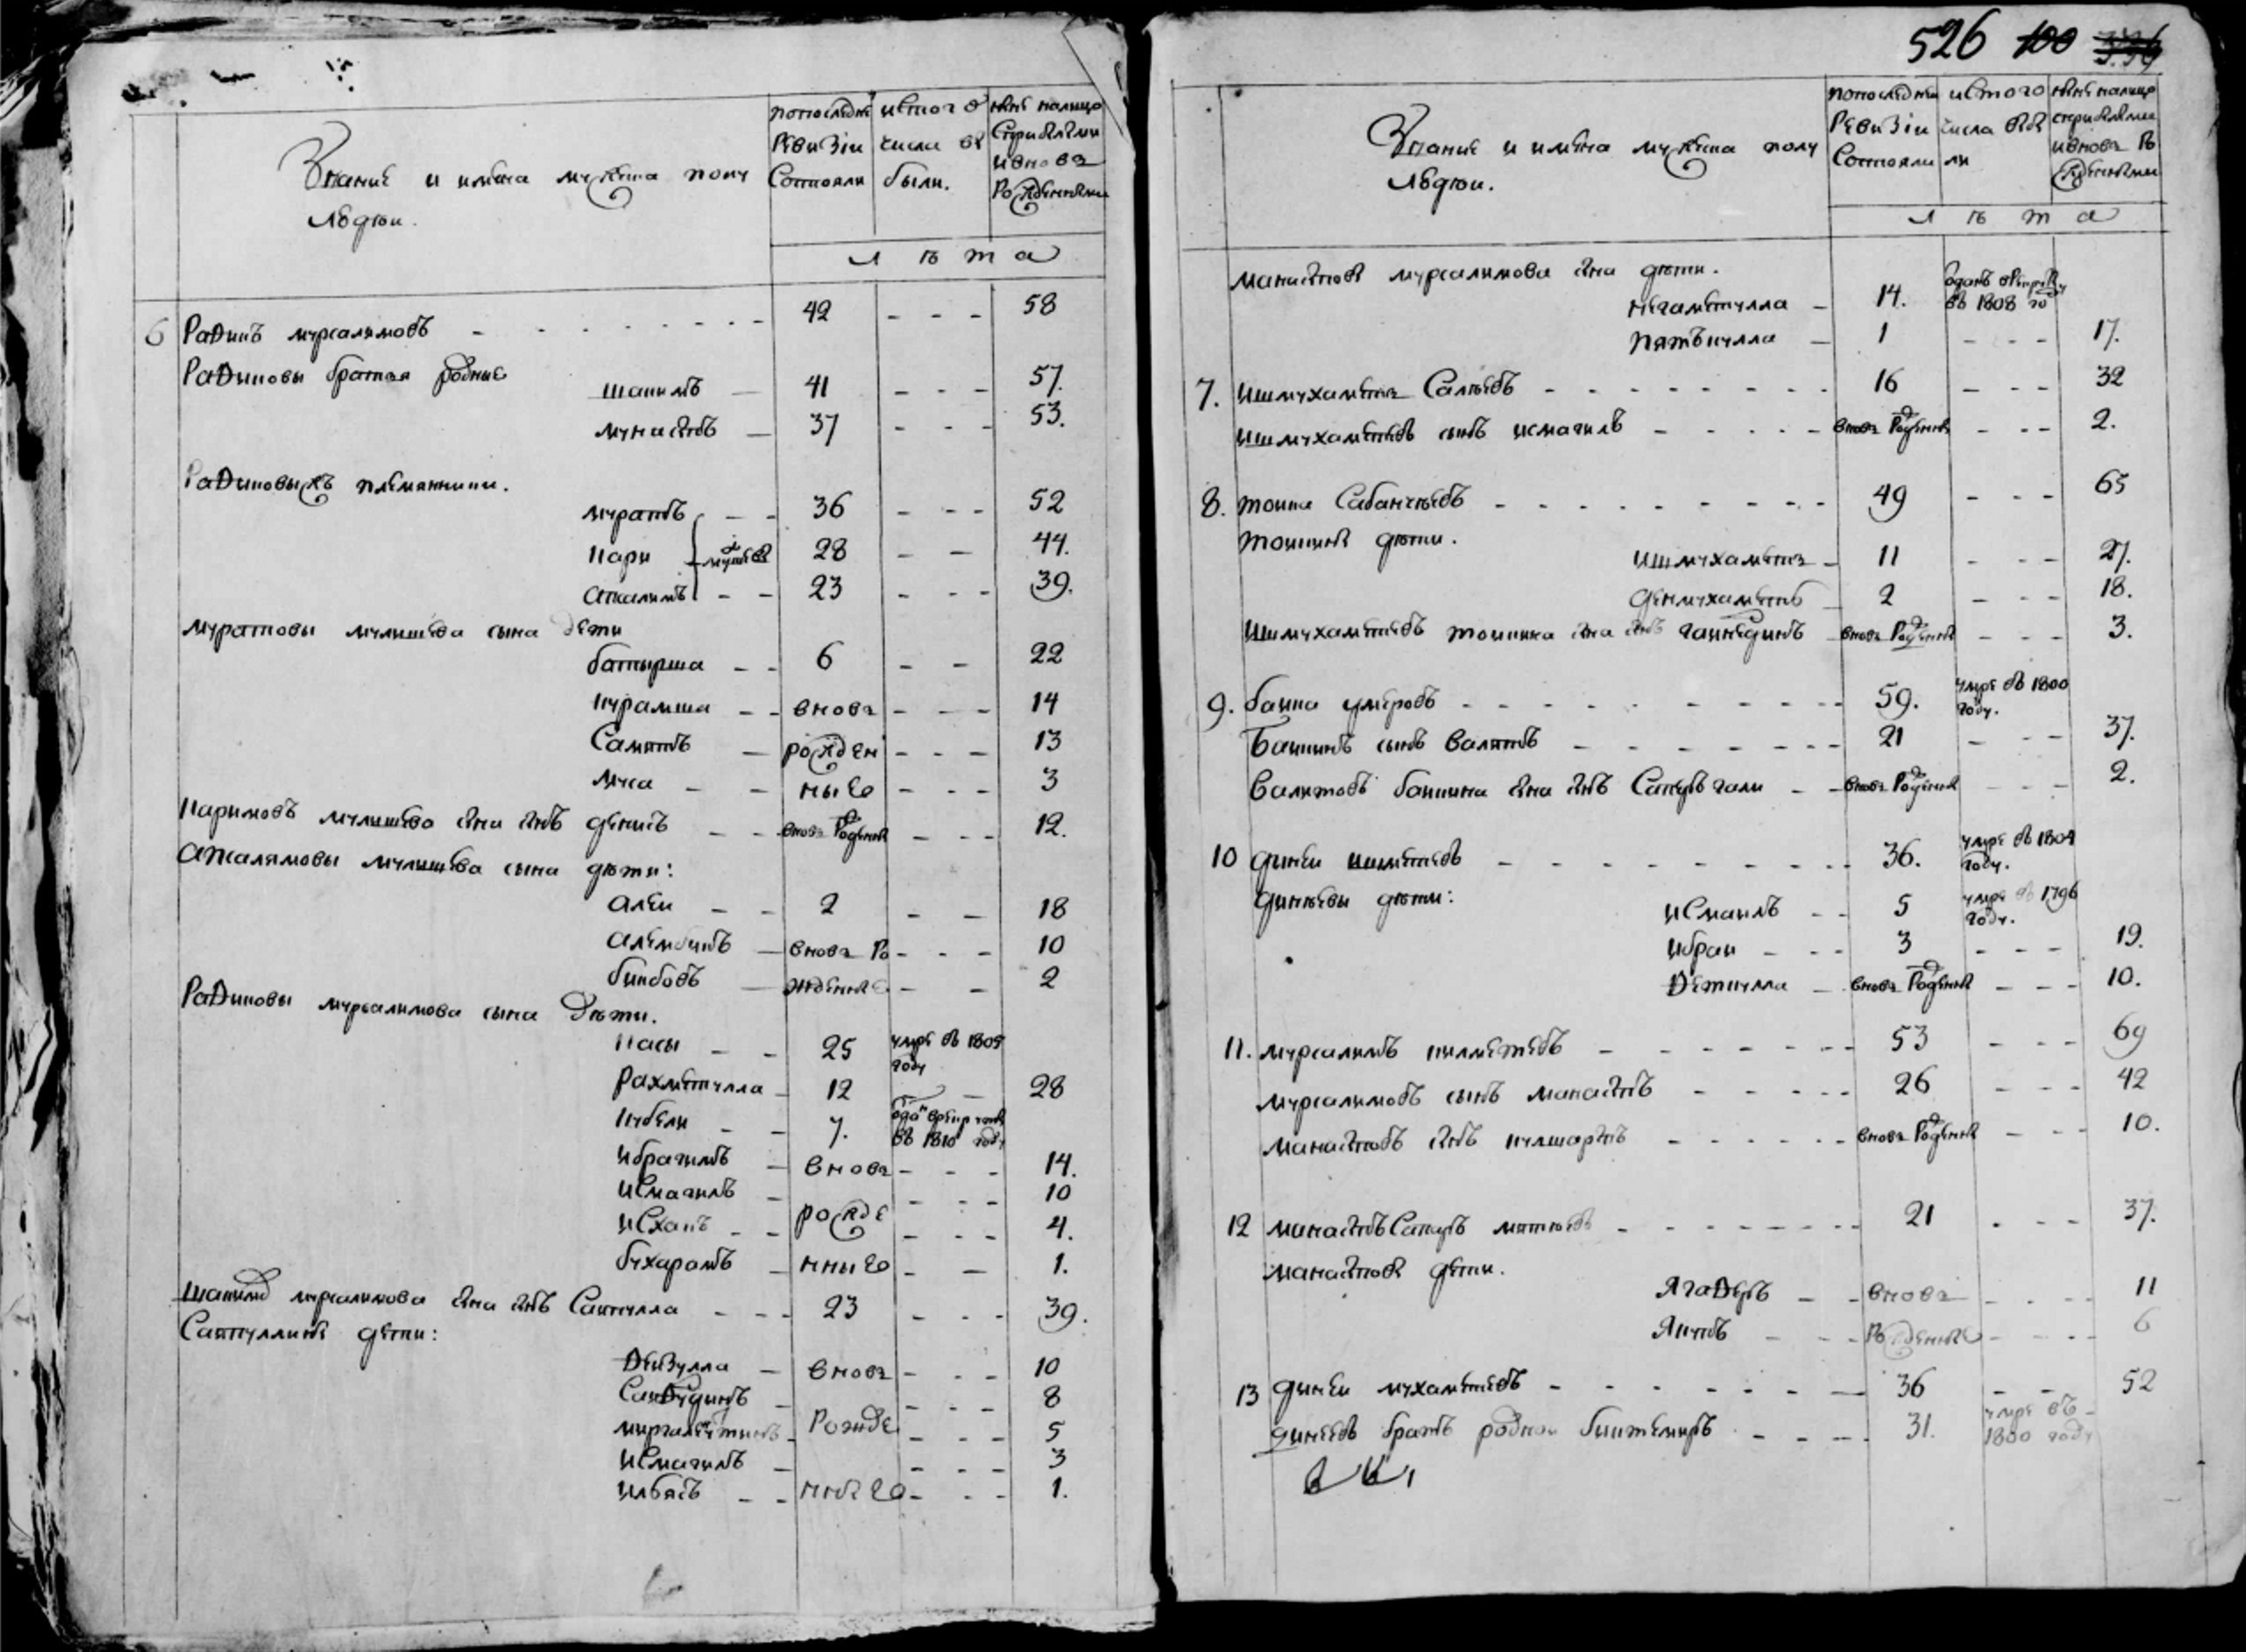 Звание и имена мужеска полу
людеи.
попоследнеи Ревизiи Состояли
истого числа выбыли.
ныне налицо Сприбылыми ивновь Рожденными
лѣта
6 Рафикъ мурсалимовъ - - - 42 - - - 58
Рафиковы братья родные
шакимъ — 41 - - - 57.
мунасыпъ — 37 - - - 53.
Рафиковыхъ племянники.
муратъ - - 36 - - - 52
Кари 28 - - 44.
апкалимъ - - 23 - - - 39.
муратовы мулишева сына дети
батырша - - 6 - - 22
Курамша - - вновь - - - 14
Самитъ — рожден - - - 13
муса - - ныхъ - - - 3
Каримовъ мулишева сна снъ денисъ - - вновь Рожденнои - - - 12.
апкалямовы мулишева сына дѣти:
алеи - - 2 - - 18
алембикъ — вновь Ро - - - 10
бикбовъ — жденные - - 2
Рафиковы мурсалимова сына дѣти.
Касы - - 25 умре въ 1805 году
Рахметулла - 12 — 28
Кубеки - - 7. въ 1810 году
ибрагимъ — вновь - - - 14.
исмагилъ - - - - 10
исхакъ - - рожде - - - 4.
бухарамъ — нныхъ - - 1.
шакимо мурсалимова сна снъ Саитулла - - - 23 - - - 39.
Саитуллины дети:
Фейзулла — вновь - - - 10
Саифудинъ - - - - 8
Рожде - - - 5
исмагилъ - - - - 3
ильясъ - - нныхъ - - - 1.
526 100
Звание и имена мужеска полу
людеи.
попоследнеи Ревизiи Состояли
истого числа выбыли
ныне налицо сприбылыми ивновь Рожденными
лѣта
манасыповы мурсалимова сна дѣти.
негаметулла - 14. въ 1808 го
1 - - - 17.
7. ишмухаметь Салѣевъ - - - 16 - - - 32
ишмухаметевъ сынъ исмагилъ - - - вновь Рожденнои - - - 2.
8. тоика Сабанчѣевъ - - - 49 - - - 65
тоикины дѣти.
ишмухаметь - 11 - - - 27.
денмухаметъ - 2 - - - 18.
ишмухаметевъ тоикина сна снъ гаинединъ - вновь Рожденнои - - - 3.
9. баика умеровъ - - - 59. умре въ 1800 году.
Баикинъ сынъ валитъ - - - 21 - - - 37.
валитовъ баикина сна снъ Сагидъ гали - - вновь Рожденнои - - - 2.
10 динеи ишметевъ - - - 36. умре въ 1804 году.
динѣевы дѣти:
исмаилъ - - 5 умре въ 1796 году.
ибраи - - - 3 - - - 19.
Феткулла — вновь Рожденнои - - - 10.
11. мурсалимъ килметевъ - - - 53 - - - 69
мурсалимовъ сынъ манасыпъ - - - 26 - - - 42
манасыповъ снъ кулшарыпъ - - - вновь Рожденнои - - - 10.
12 манасыпъ Сагитъ - - - 21 - - - 37.
манасыповы дети.
Ягаферъ - - вновь - - - 11
Якупъ - - - Рожденные - - - 6
13 динеи мухаметевъ - - - 36 - - 52
динеевъ братъ роднои биктемиръ - - - 31. умре въ 1800 году